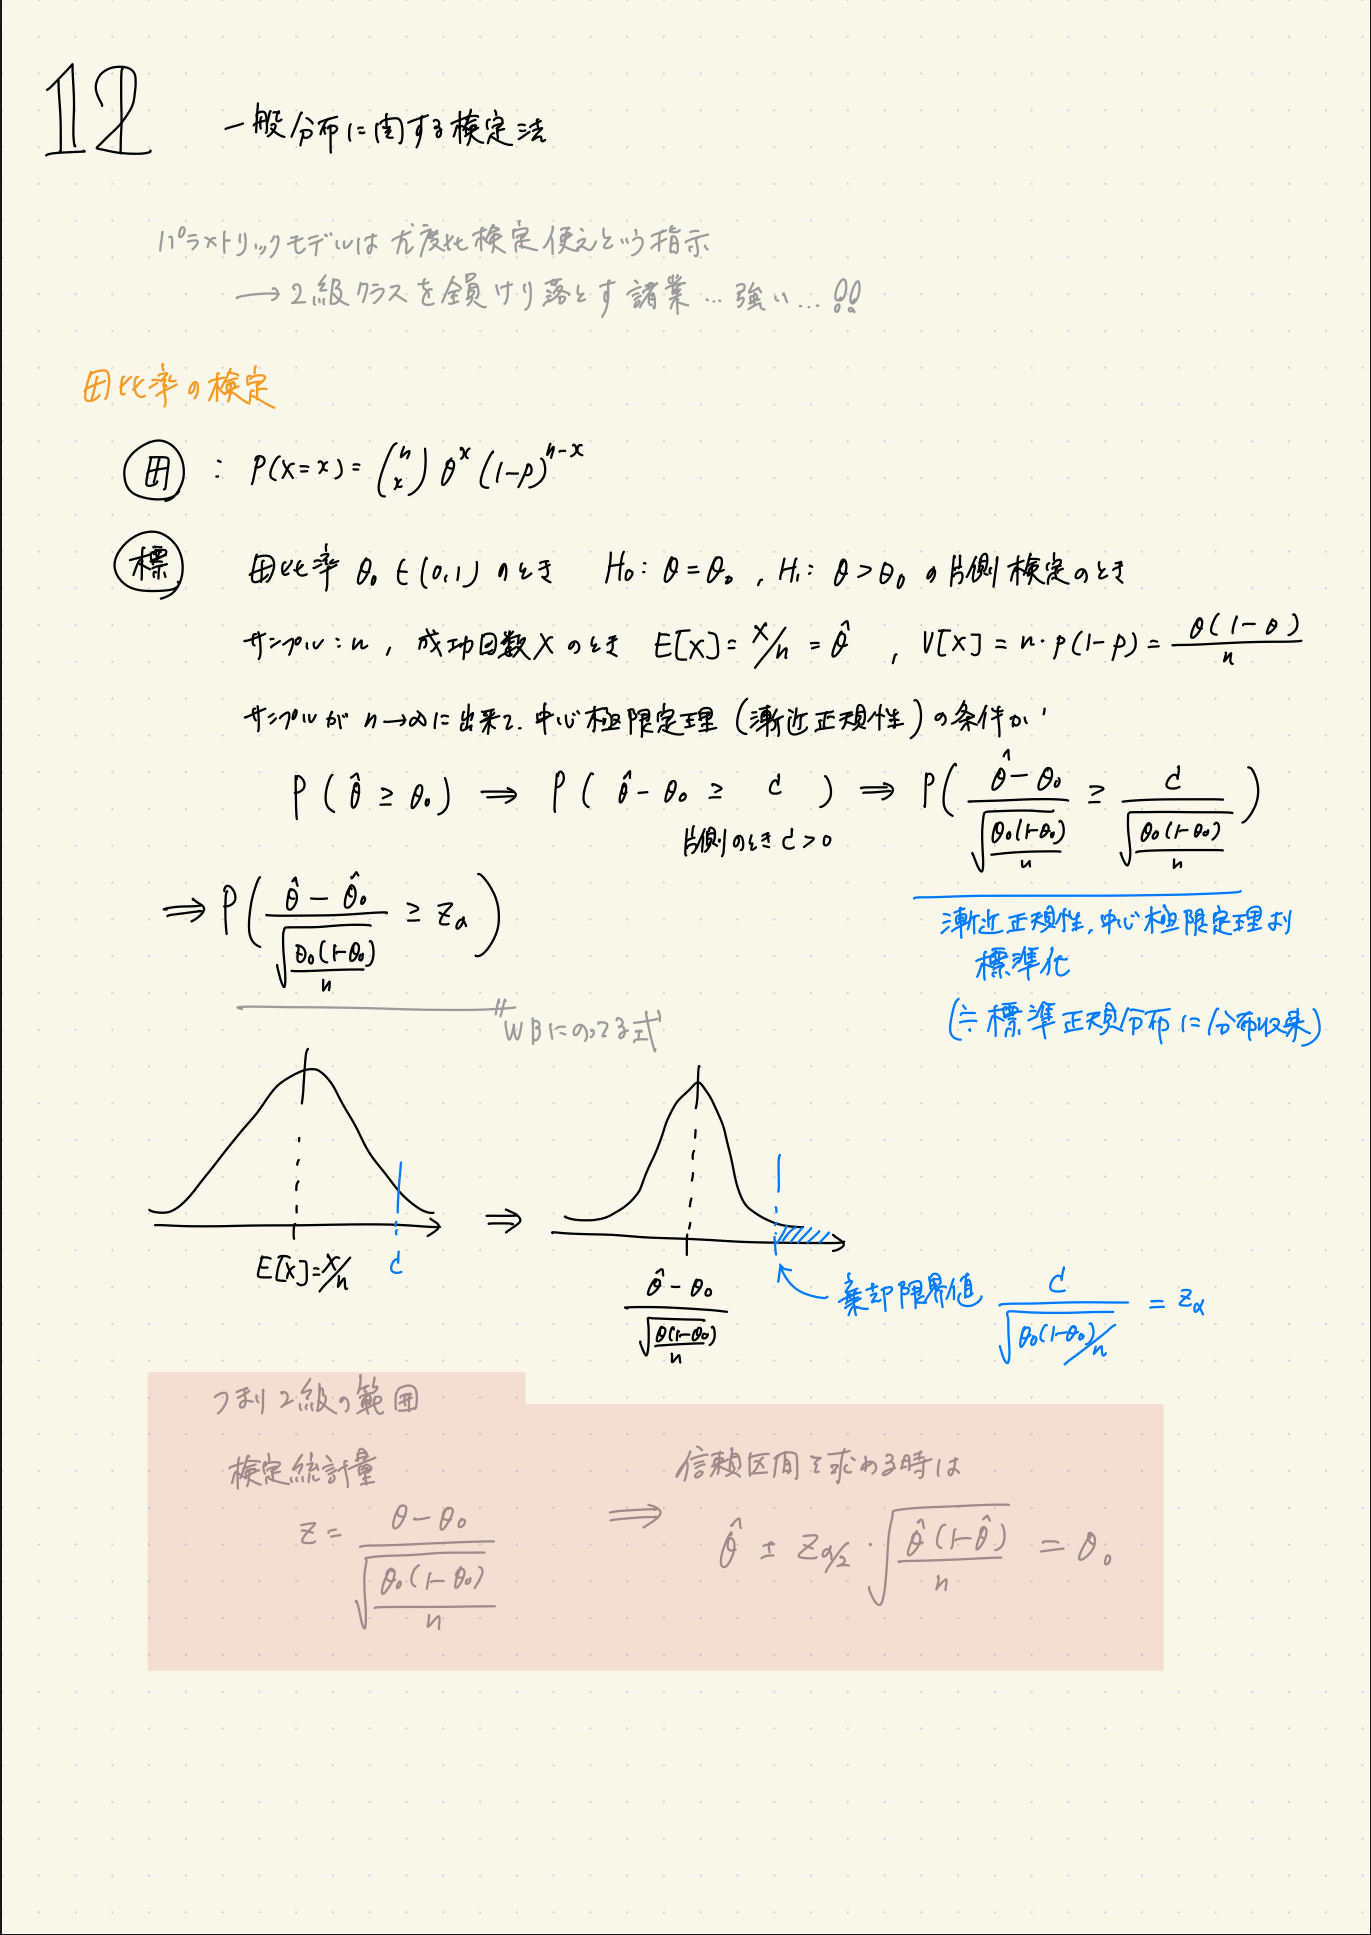 12 一般分布に関する検定法
パラメトリックモデルは尤度比検定使えという指示
→ 2級クラスを全員けり落とす諸業…強い…!!
母比率の検定
母 : P(X=x) = (n x) θ^x (1-p)^{n-x}
標 母比率 θ₀ ∈ (0,1) のとき H₀: θ=θ₀ , H₁: θ>θ₀ の片側検定のとき
サンプル:n , 成功回数Xのとき E[X]=X/n = θ̂ , V[X] = n・p(1-p) = θ(1-θ)/n
サンプルが n→∞に出来て、中心極限定理(漸近正規性)の条件が
P(θ̂ ≥ θ₀) ⟹ P(θ̂-θ₀ ≥ c) ⟹ P( (θ̂-θ₀)/√(θ₀(1-θ₀)/n) ≥ c/√(θ₀(1-θ₀)/n) )
片側のとき c>0
⟹ P( (θ̂ - θ̂₀)/√(θ₀(1-θ₀)/n) ≥ z_α )
漸近正規性,中心極限定理より
標準化
(≒標準正規分布に分布収束)
"WBにのってる式"
E[X]=X/n
c
⟹
(θ̂-θ₀)/√(θ(1-θ₀)/n)
棄却限界値 c/√(θ₀(1-θ₀)/n) = z_α
つまり2級の範囲
検定統計量
z = (θ-θ₀)/√(θ₀(1-θ₀)/n)
⟹ 信頼区間で求める時は
θ̂ ± z_{α/2}・√(θ̂(1-θ̂)/n) = θ₀